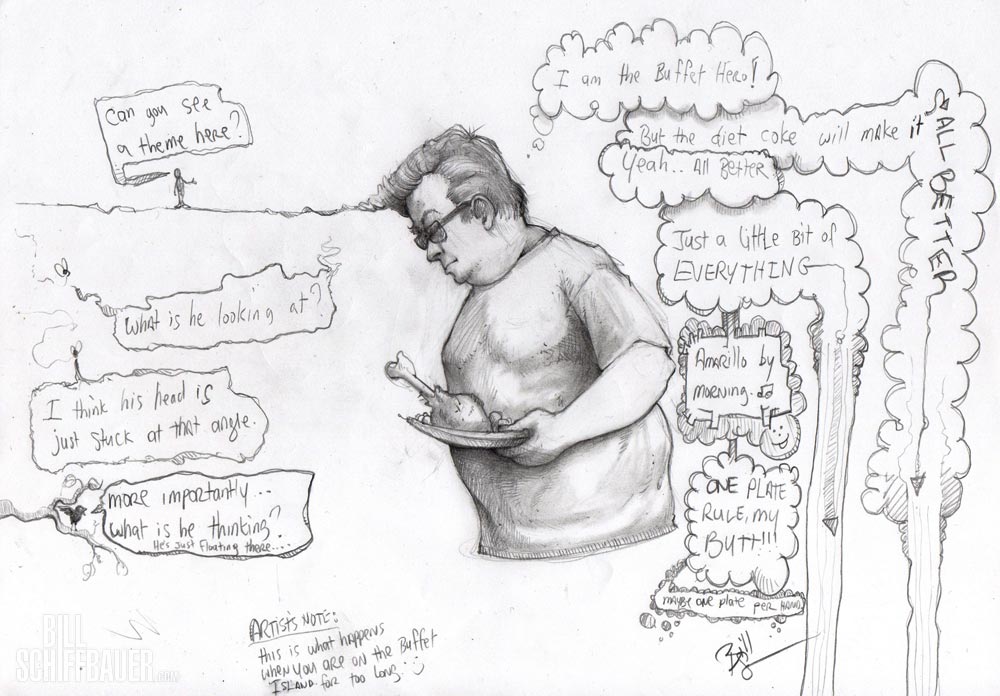 Can you see
a theme here?
What is he looking at?
I think his head is
just stuck at that angle.
more importantly..
what is he thinking?
He's just Floating there....
I am the Buffet Hero!
But the diet coke will make it
ALL BETTER
Yeah.. All Better
Just a little Bit of
EVERYTHING
Amarillo by
morning.
ONE PLATE
RULE, my
BUTT!!!
maybe one plate per HAND
ARTIST'S NOTE:
this is what happens
when you are on the Buffet
ISLAND for too long.
Bill
BILL
SCHIFFBAUER.COM